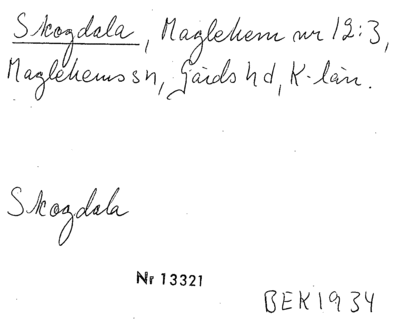 Skogdala, Maglehem nr 12:3,
Maglehems sn, Gärds hd, K-län.
Skogdala
Nr 13321
BEK 1934